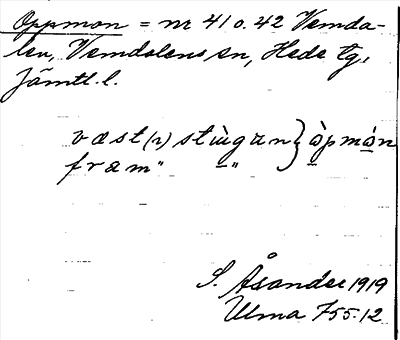 Oppmon = nr 41 o. 42 Vemda-
len, Vemdalens sn, Hede tg,
Jämtl. l.
væst(r) stùgɑn } òpmón
fræm " – " –
S. Åsander 1919
Ulma 755.12